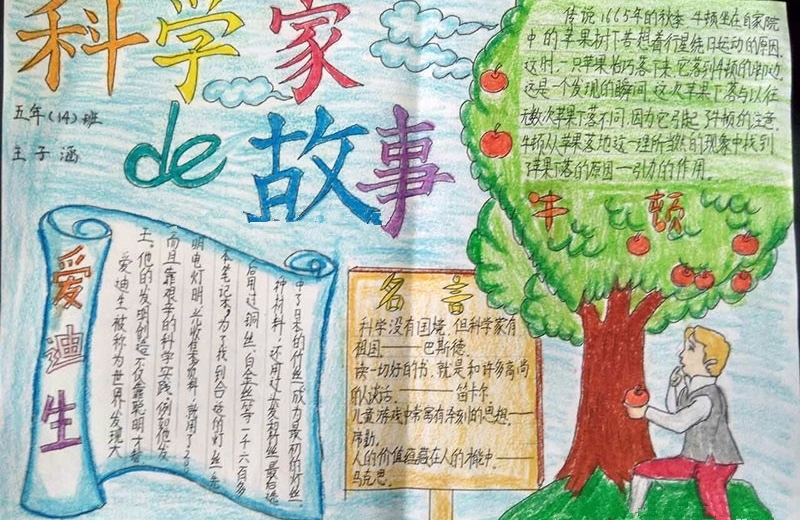 科学家
de 故事
五年(14)班
王子涵
传说1665年的秋季,牛顿坐在自家院
中的苹果树下苦想着行星绕日运动的原因.
这时,一只苹果恰巧落下来,它落到牛顿的脚边.
这是一个发现的瞬间,这次苹果下落与以往
无数次苹果下落不同,因为它引起了牛顿的注意.
牛顿从苹果落地这一理所当然的现象中找到
了苹果下落的原因——引力的作用.
牛顿
爱迪生
爱迪生被称为世界发明大
王,他的发明创造不仅靠聪明才智
而且靠艰辛的科学实践,例如他发
明电灯时,光收集资料,就用了200
本笔记本,为了找到合适的灯丝,先
后用过铜丝、白金丝等一千六百多
种材料,还用过头发和各种
中了日本的竹丝成为最初的灯丝.
名言
科学没有国境,但科学家有
祖国——巴斯德.
读一切好的书,就是和许多高尚
的人谈话.——笛卡尔.
儿童游戏中常寓有深刻的思想——
席勒.
人的价值蕴藏在人的才能中——
马克思.